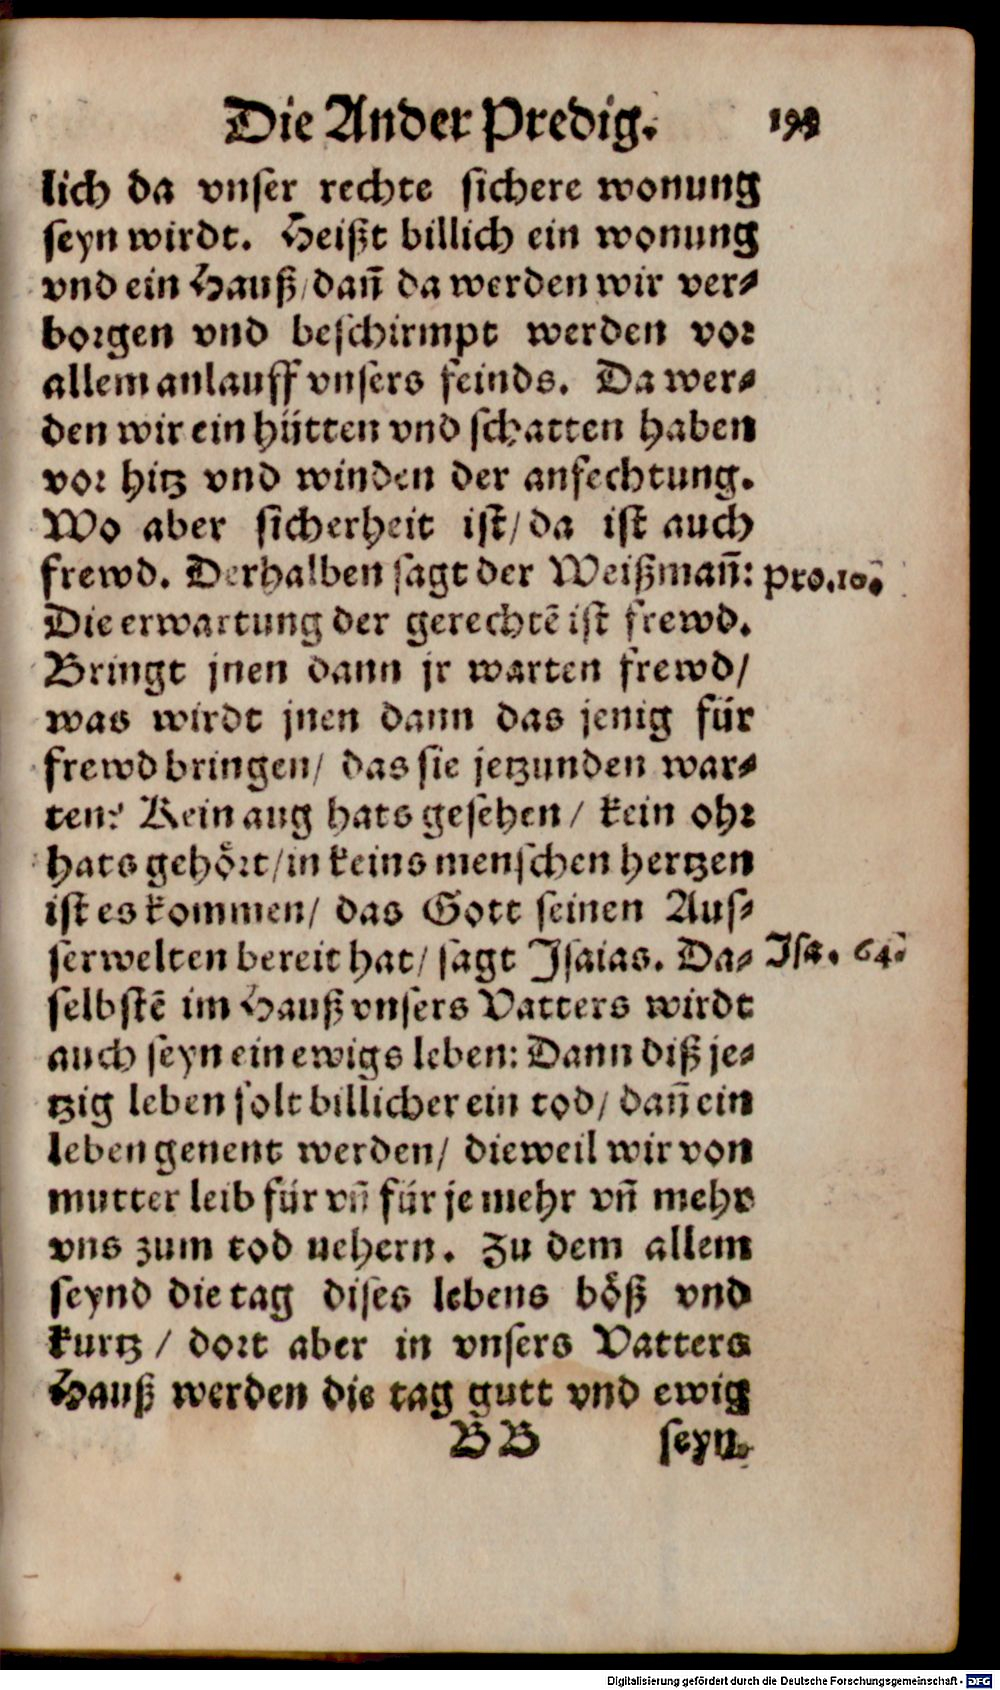 Die Ander Predig.
lich da vnser rechte sichere wonung
seyn wirdt. Heißt billich ein wonung
vnd ein Hauß/ dañ da werden wir ver-
borgen vnd beschirmpt werden vor
allem anlauff vnsers feinds. Da wer-
den wir ein hütten vnd schatten haben
vor hitz vnd winden der anfechtung.
Wo aber sicherheit ist/ da ist auch
frewd. Derhalben sagt der Weißmañ: Pro.10.
Die erwartung der gerechtē ist frewd.
Bringt jnen dann jr warten frewd/
was wirdt jnen dann das jenig für
frewd bringen/ das sie jetzunden war-
ten? Kein aug hats gesehen / kein ohr
hats gehört/ in keins menschen hertzen
ist es kommen/ das Gott seinen Aus-
serwelten bereit hat/ sagt Isaias. Da- Isa. 64.
selbstē im Hauß vnsers Vatters wirdt
auch seyn ein ewigs leben: Dann diß je-
tzig leben solt billicher ein tod/ dañ ein
leben genent werden/ dieweil wir von
mutter leib für vñ für je mehr vñ mehr
vns zum tod nehern. Zu dem allem
seynd die tag dises lebens böß vnd
kurtz / dort aber in vnsers Vatters
Hauß werden die tag gutt vnd ewig
BB seyn.
Digitalisierung gefördert durch die Deutsche Forschungsgemeinschaft - DFG